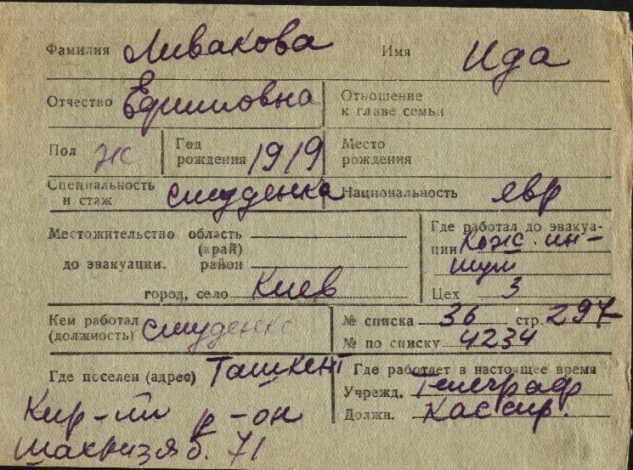 Фамилия Ливакова Имя Ида
Отчество Ефимовна Отношение к главе семьи
Пол ж Год рождения 1919 Место рождения
Специальность и стаж студенка Национальность явр
Местожительство до эвакуации. область (край) район
город, село Киев
Где работал до эвакуации Кож. ин-
штут
Цех 3
Кем работал (должность) студенка
№ списка 36 стр. 297
№ по списку 4234
Где поселен (адрес) Ташкент
Кир-ий р-он
71
Где работает в настоящее время
Учрежд. Телеграф
Должн. Кассир.